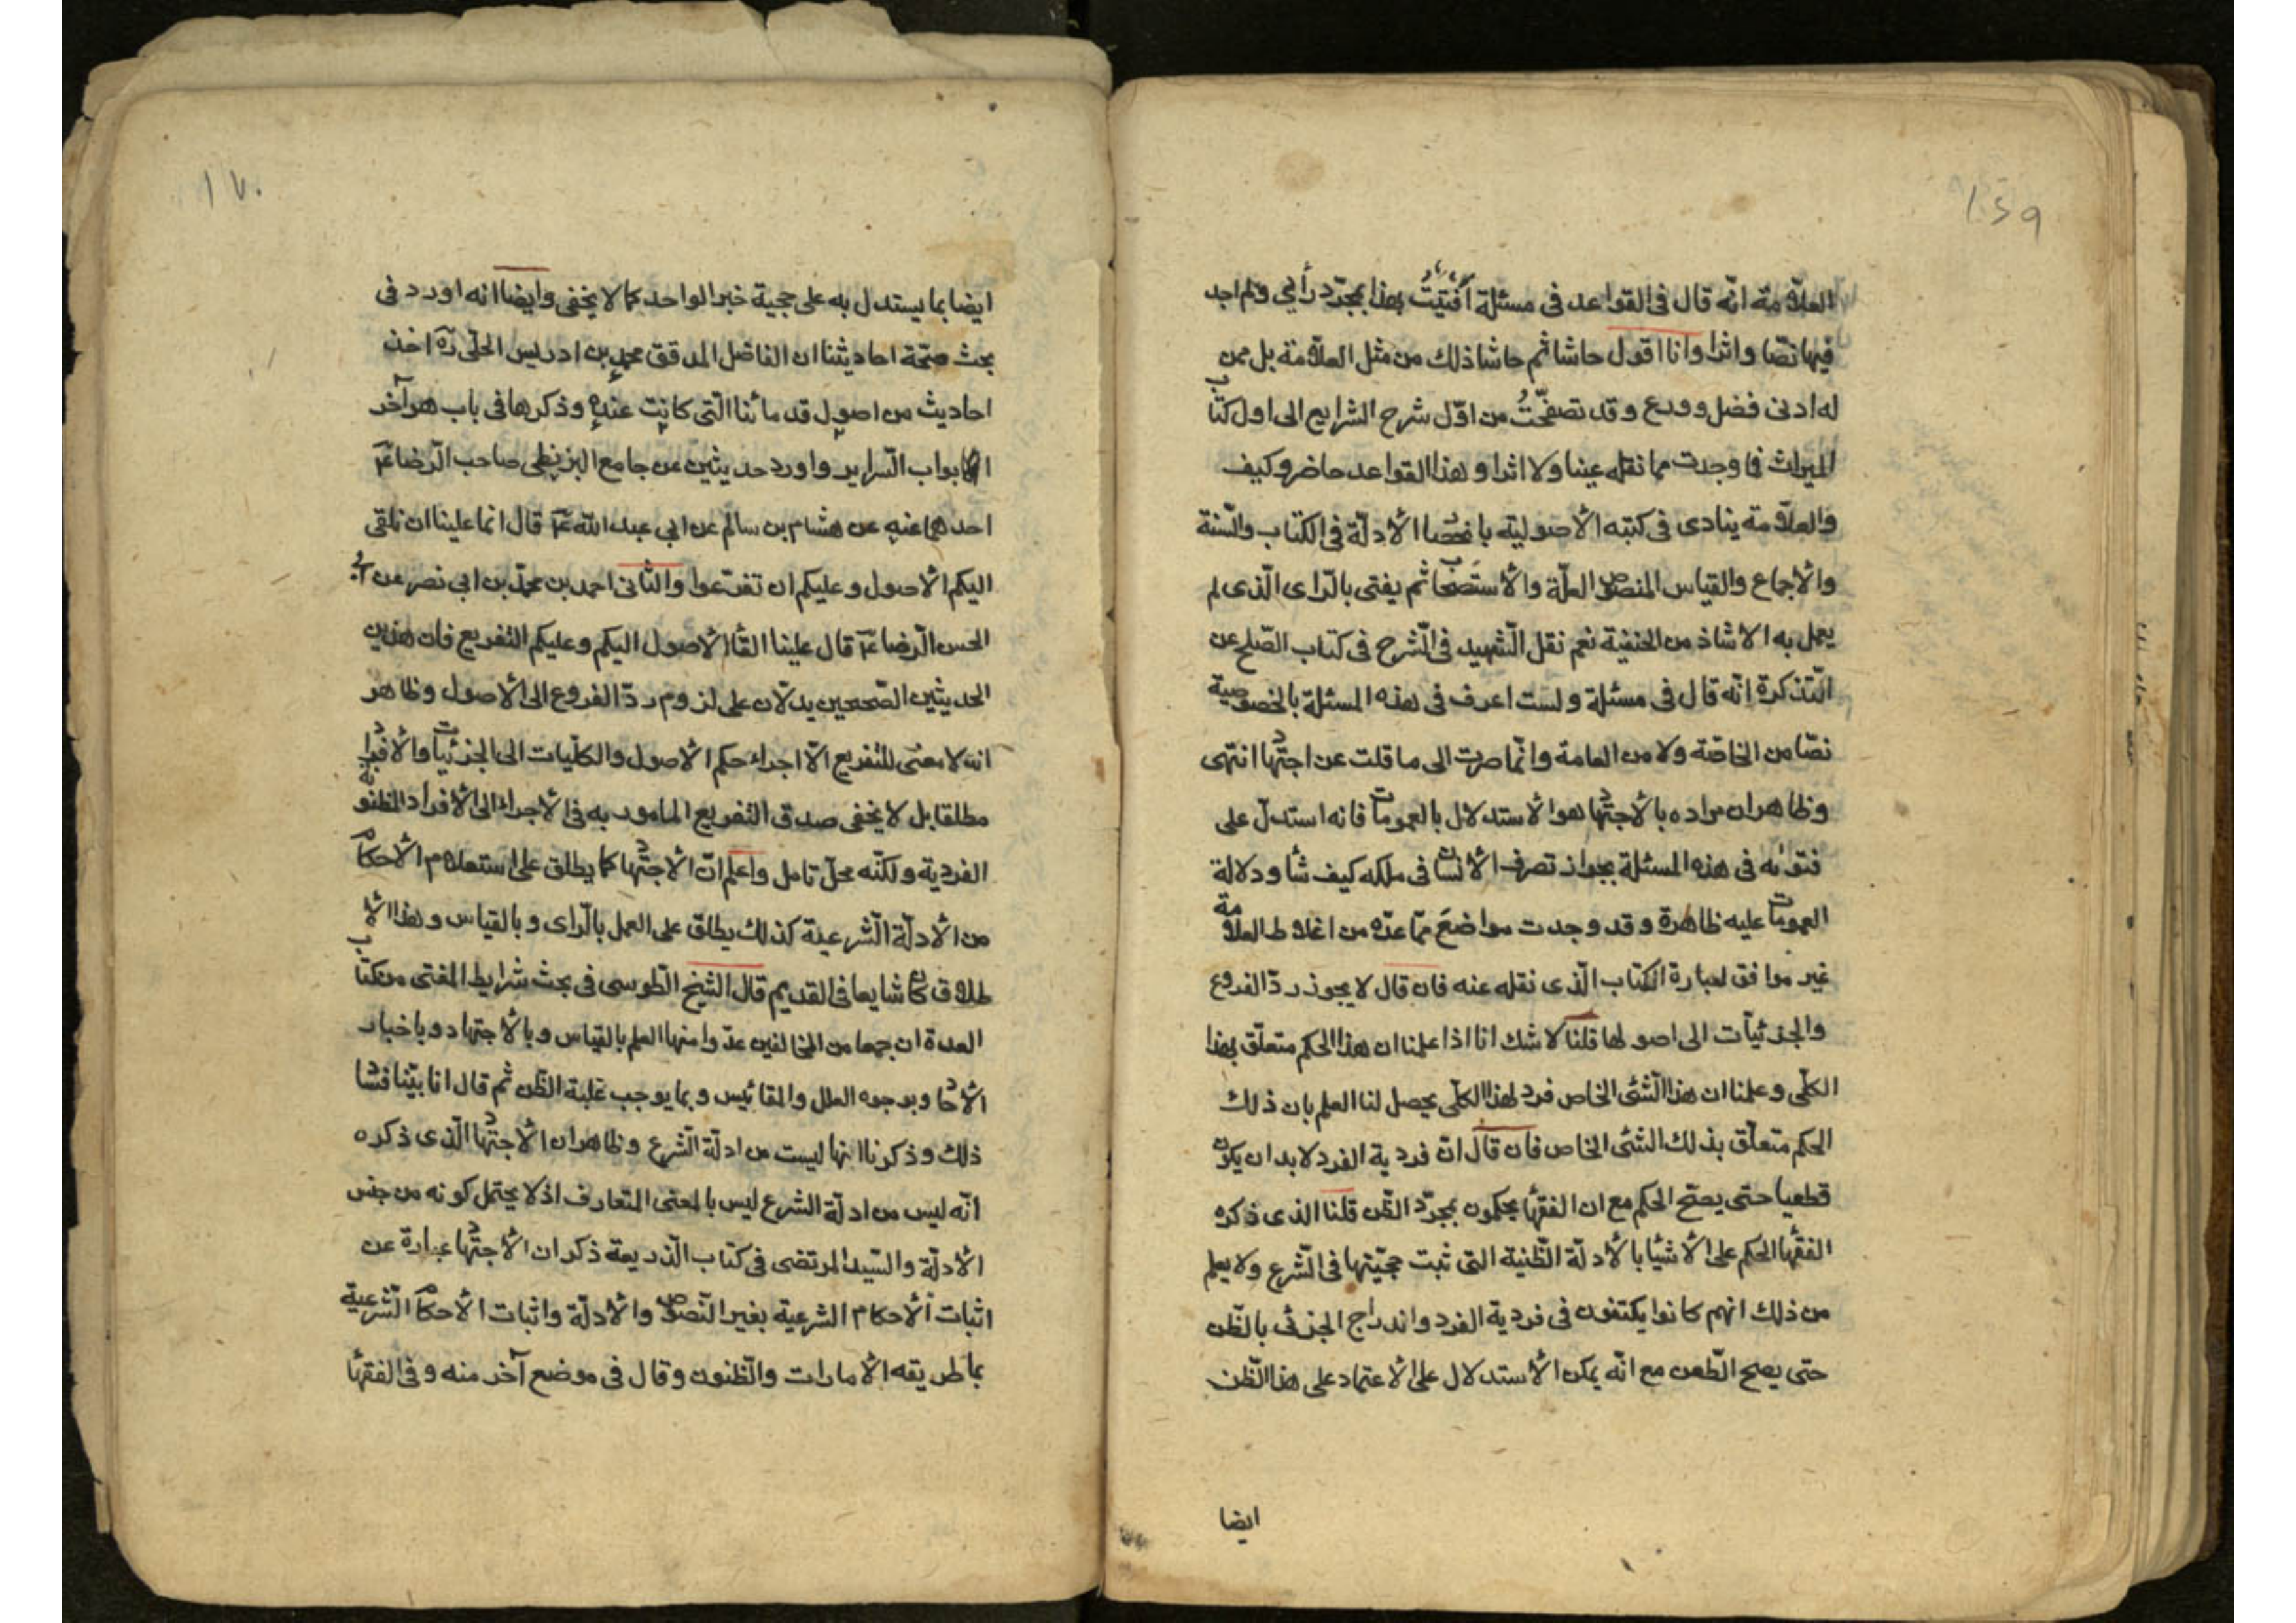 ١٦٩
العلامة انّه قال فى القواعد فى مسئلة أفتيتُ بهذا بمجرّد رأيي ولم اجد
فيها نصّا واثرا وانا اقول حاشا ثم حاشا ذلك من مثل العلّامة بل ممن
له ادنى فضل وورع وقد تصفّحتُ من اوّل شرح الشرايع الى اول كتاب
الميراث فما وجدت مما نقله عينا ولا اثرا و هذا القواعد حاضر وكيف
والعلّامة ينادى فى كتبه الأصوليّة بانحصا الأدلّة فى الكتاب والسّنة
والأجماع والقياس المنصوص العلّة والأستصحاب ثم يفتى بالرّاى الّذى لم
يعمل به الا شاذ من الحنفية نعم نقل الشّهيد فى الشّرح فى كتاب الصّلح عن
التذكرة انّه قال فى مسئلة ولست اعرف فى هذه المسئلة بالخصوصية
نصّا من الخاصّة ولا من العامة وانّما صرت الى ما قلت عن اجتهاد انتهى
وظاهر ان مراده بالأجتهاد هو الأستدلال بالعمومات فانه استدلّ على
فتواه فى هذه المسئلة بجواز تصرف الأنسان فى ملكه كيف شأ ودلالة
العمومات عليه ظاهرة وقد وجدت مواضعَ ممّا عدّه من اغلاط العلّامة
غير موافق لعبارة الكتاب الّذى نقله عنه فان قال لا يجوز ردّ الفروع
والجزئيّات الى اصولها قلنا لا شك انا اذا علمنا ان هذا الحكم متعلّق بهذا
الكلّى وعلمنا ان هذا الشّئى الخاص فرد لهذا الكلّى يحصل لنا العلم بان ذلك
الحكم متعلّق بذلك الشئى الخاص فان قال انّ فردية الفرد لا بد ان يكون
قطعيا حتى يصحّ الحكم مع ان الفقهأ يحكمون بمجرّد الظّن قلنا الذى ذكره
الفقهأ الحكم على الأشيأ بالأدلّة الظّنية التى ثبت حجيّتها فى الشّرع ولا يعلم
من ذلك انهم كانوا يكتفون فى فردية الفرد واندراج الجزئى بالظّن
حتى يصح الطّعن مع انّه يمكن الأستدلال على الأعتماد على هذا الظّن
ايضا
١٧٠
ايضا بما يستدل به على حجية خبر الواحد كما لا يخفى وايضا انه اورد فى
بحث صحّة احاديثنا ان الفاضل المدقق محمد بن ادريس الحلّى ره اخذ
احاديث من اصول قدمائنا الّتى كانت عنده وذكرها فى باب هو آخر
ابواب السّراير واورد حديثين عن جامع البزنطى صاحب الرّضا عم
احدهما عنه عن هشام بن سالم عن ابي عبد الله عم قال انما علينا ان نلقى
اليكم الأصول وعليكم ان تفرّعوا والثّانى احمد بن محمّد بن ابى نصر عن ابى
الحسن الرّضا عم قال علينا القأ الأصول اليكم وعليكم التفريع فان هذين
الحديثين الصّحيحين يدلّان على لزوم ردّ الفروع الى الأصول وظاهر
انه لا معنى للتفريع الّا اجراء حكم الأصول والكلّيات الى الجزئيات والأفراد
مطلقا بل لا يخفى صدق التفريع المامور به فى الأجراء الى الأفراد المظنونة
الفردية ولكنّه محلّ تامل واعلم انّ الأجتهاد كما يطلق على استعلام الأحكام
من الأدلّة الشّرعية كذلك يطلق على العمل بالرّاى وبالقياس وهذا الأ
طلاق كان شايعا فى القديم قال الشّيخ الطّوسى فى بحث شرايط المفتى من كتاب
العدة ان جمعا من المخالفين عدّوا منها العلم بالقياس وبالأجتهاد وباخبار
الأحاد وبوجوه العلل والمقائيس وبما يوجب غلبة الظّن ثمّ قال انا بيّنا فساد
ذلك وذكرنا انها ليست من ادلّة الشّرع وظاهر ان الأجتهاد الّذى ذكره
انّه ليس من ادلّة الشرع ليس بالمعنى المتعارف اذ لا يحتمل كونه من جنس
الأدلّة والسّيد المرتضى فى كتاب الذّريعة ذكر ان الأجتهاد عبارة عن
اثبات ألأحكام الشرعية بغير النّصوص والأدلّة واثبات الأحكام الشّرعية
بما طريقه الأمارات والظّنون وقال فى موضع آخر منه وفى الفقهأ